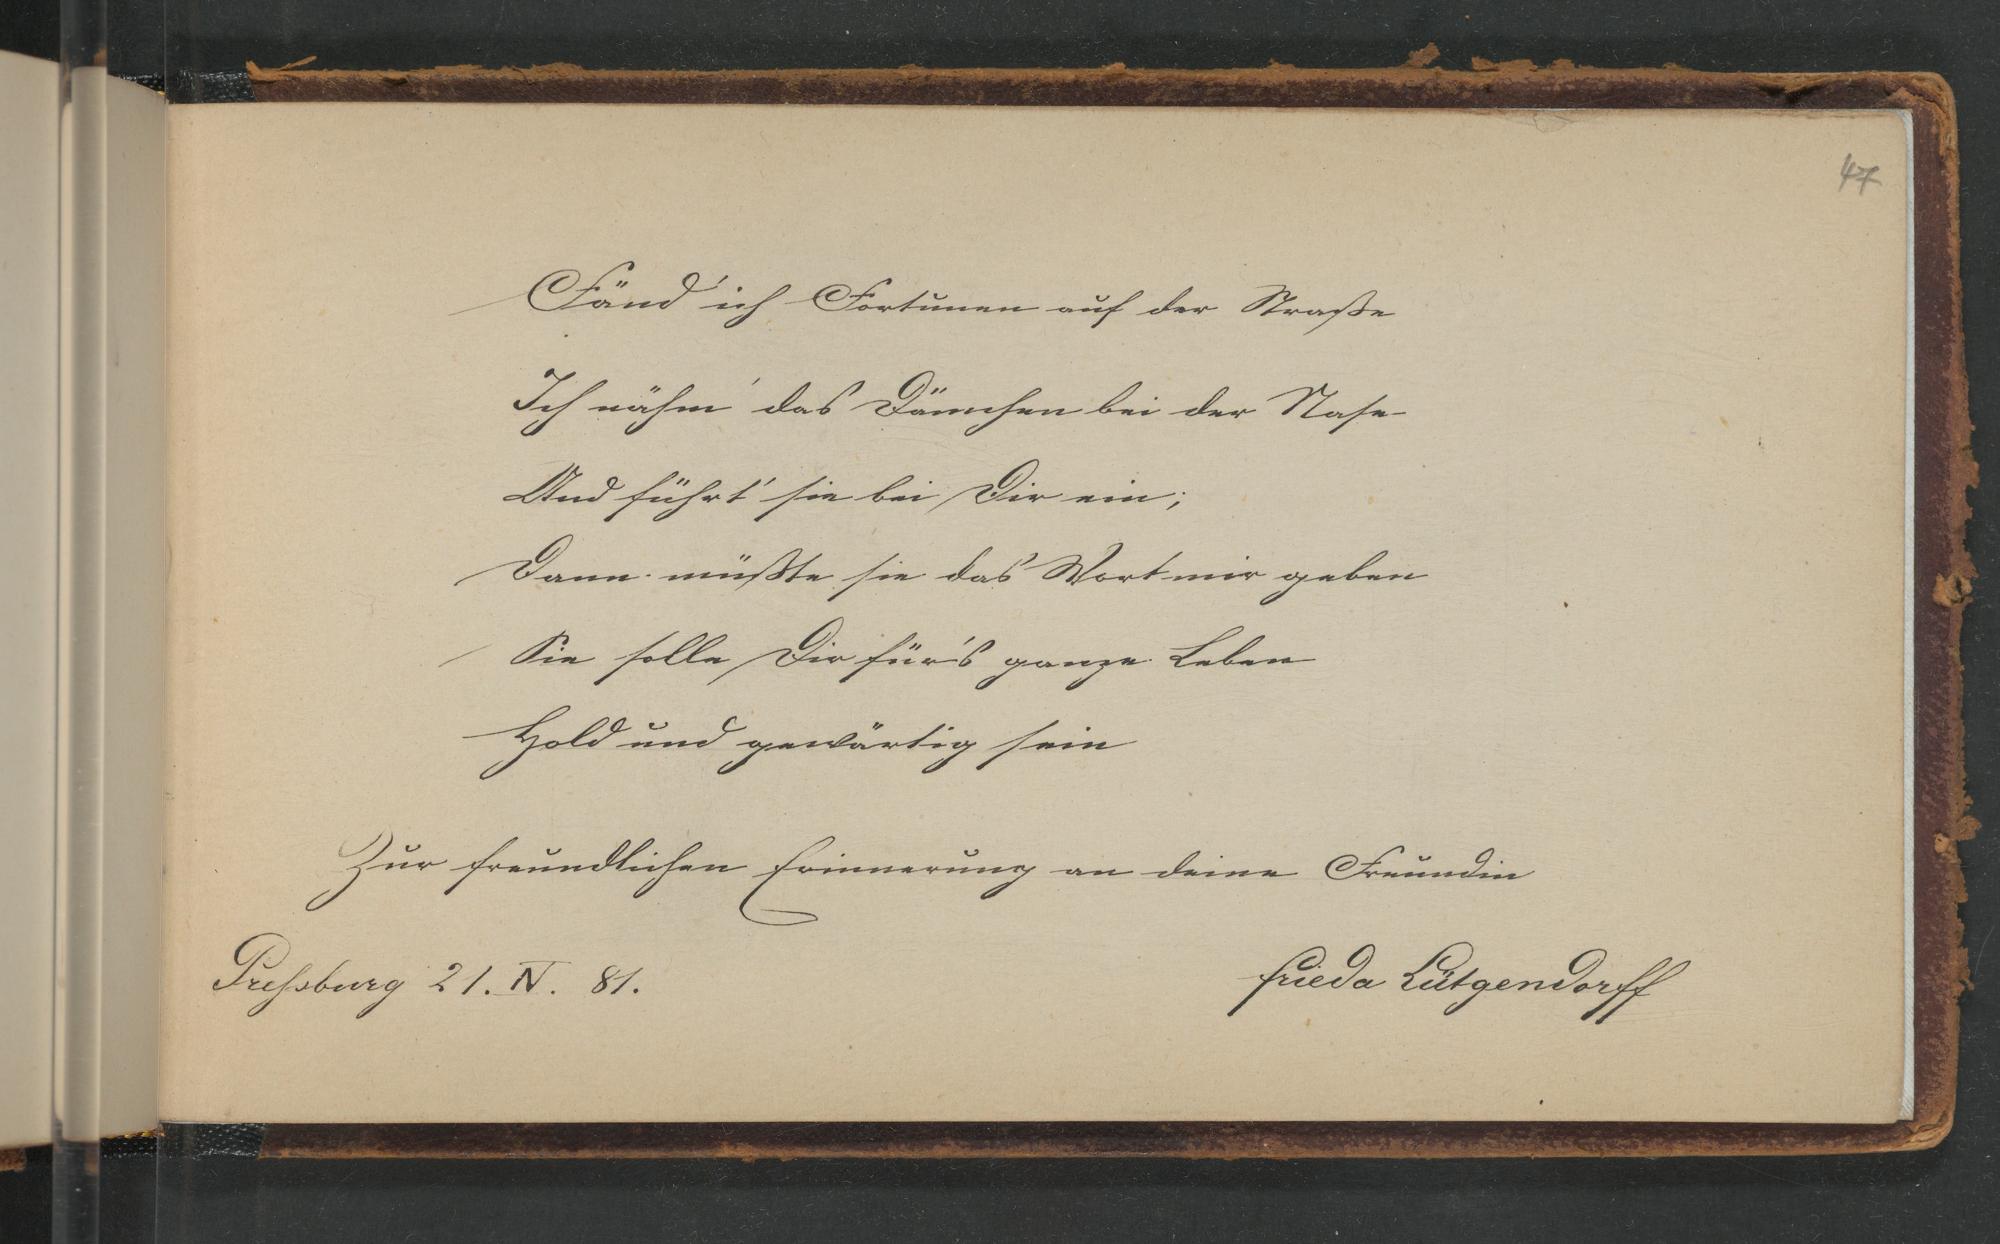 47
Fänd' ich Fortunen auf der Straße
Ich nähm' das Dämchen bei der Nase
Und führt' sie bei Dir ein;
Dann müßte sie das Wort mir geben
Sie solle Dir für's ganze Leben
Hold und gewärtig sein
Zur freundlichen Erinnerung an deine Freundin
Preßburg 21. IV. 81.
Frieda Lütgendorff